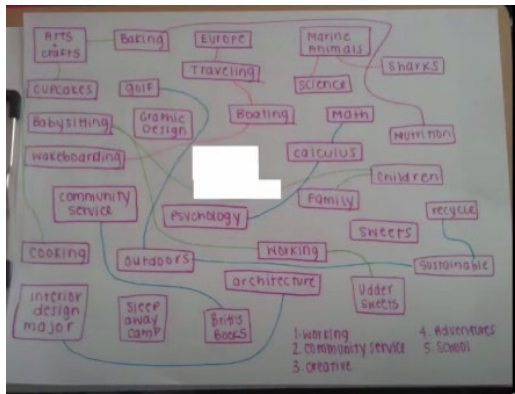 Arts
+
crafts
Baking
Europe
Marine
Animals
Sharks
Traveling
Cupcakes
golf
Science
Babysitting
Graphic
Design
Boating
Math
Nutrition
Wakeboarding
calculus
children
community
service
Family
Psychology
recycle
Sweets
Cooking
outdoors
Working
Sustainable
architecture
Udder
Sweets
interior
design
major
Sleep
away
camp
Britt's
Books
1. working
2. community service
3. creative
4. Adventures
5. School